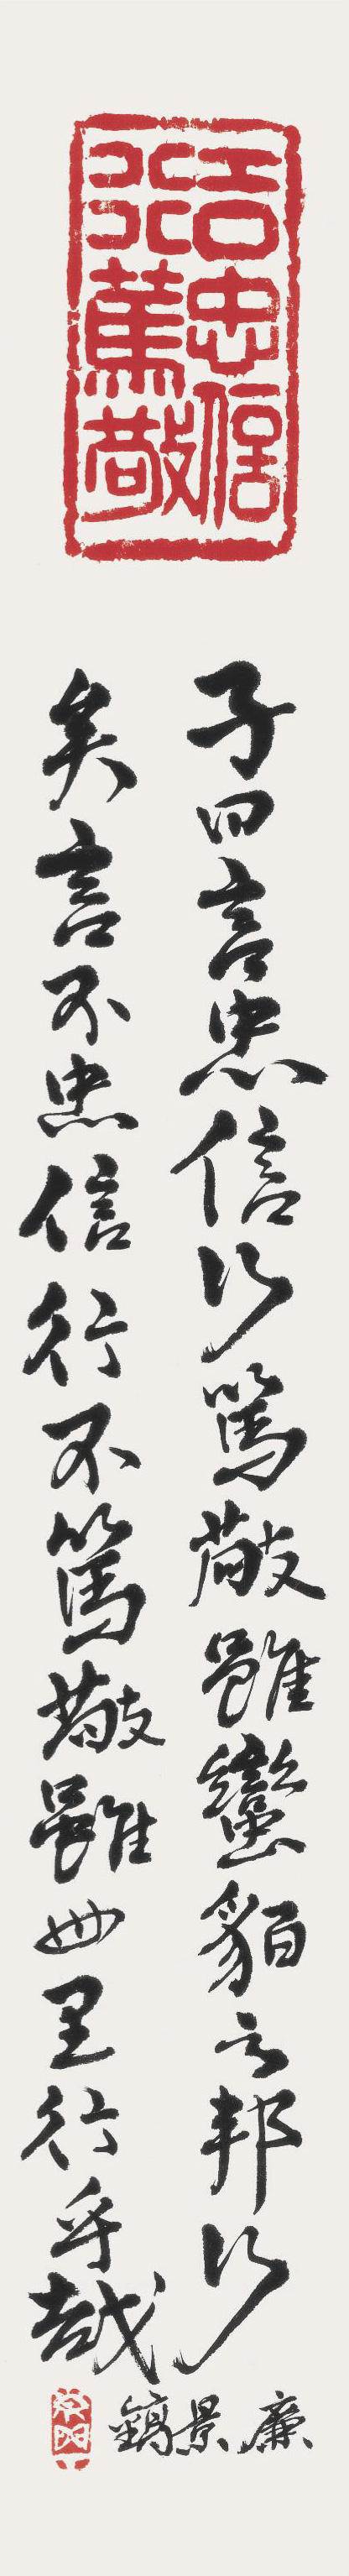 言忠信
行篤敬
子曰言忠信行篤敬雖蠻貊之邦行
矣言不忠信行不篤敬雖州里行乎哉
廉景鎬